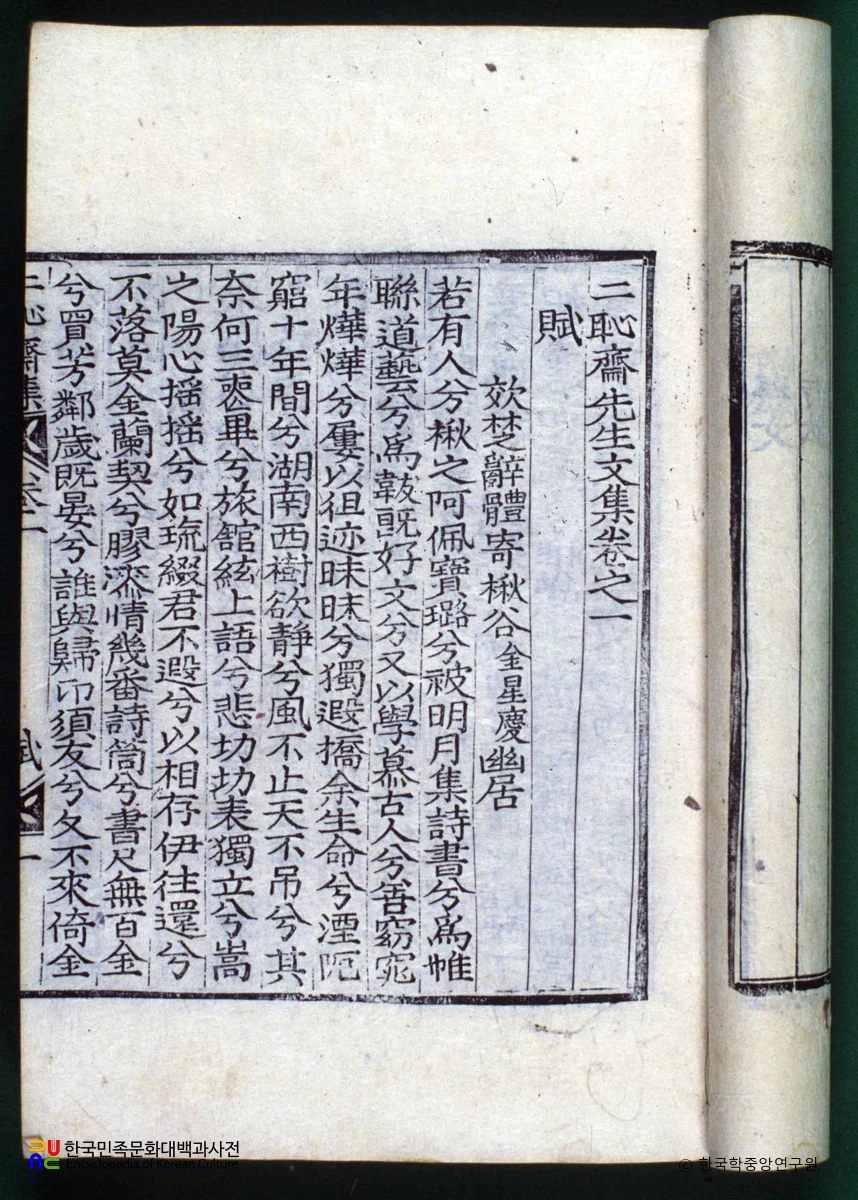 二恥齋先生文集卷之一
賦
效楚辭體寄楸谷金星慶幽居
若有人兮楸之阿佩寶璐兮被明月集詩書兮爲帷
聯道藝兮爲㦸旣好文兮又以學慕古人兮善窈窕
年燁燁兮屢以徂迹昧昧兮獨遐撟余生命兮湮阨
窮十年間兮湖南西樹欲靜兮風不止天不弔兮其
奈何三喪畢兮旅舘絃上語兮悲切切表獨立兮嵩
之陽心搖搖兮如琉綴君不遐兮以相存伊往還兮
不落莫金蘭契兮膠漆情幾番詩筒兮書尺無百金
兮買芳鄰歲旣晏兮誰與歸卬須友兮久不來倚金
二恥齋集 卷一 賦 一
한국민족문화대백과사전
Encyclopedia of Korean Culture
© 한국학중앙연구원